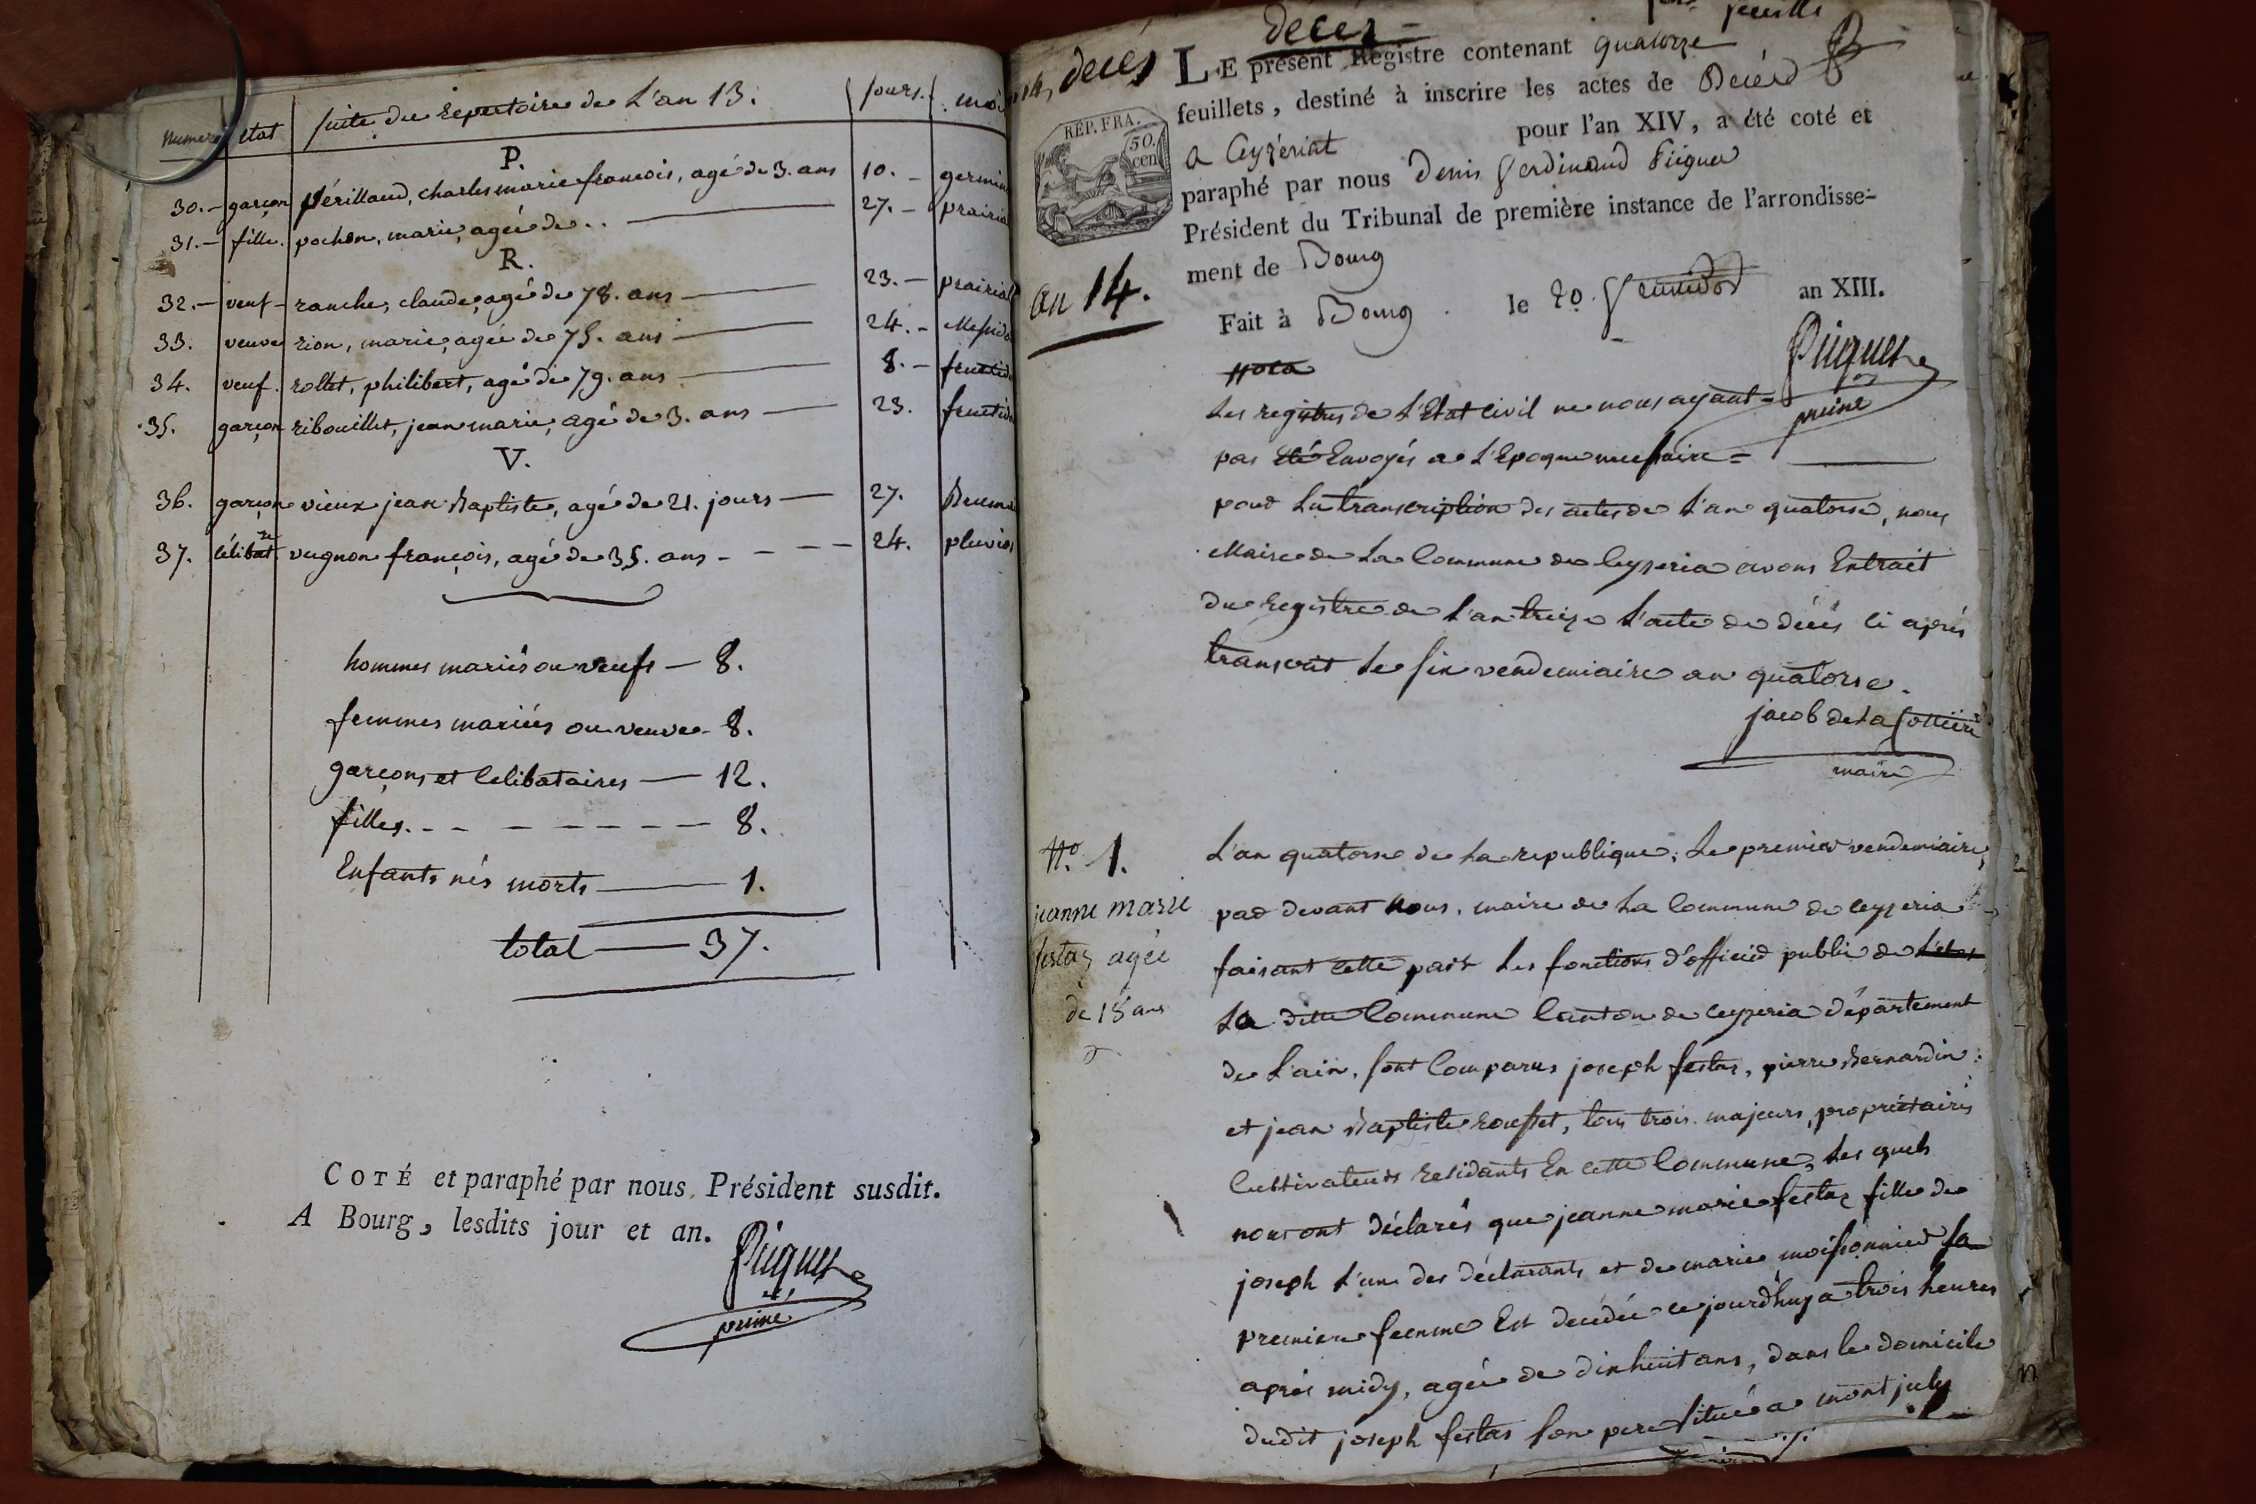 numero état suite du repertoire de L'an 13. jours. mois
P.
30. garçon périllaud, charles marie francois, agé de 3. ans 10. germin
31. fille. pochon, marie, agée de . . 27. prairia
R.
32. veuf ranche, claude, agé de 78. ans 23. prairial
33. veuve rion, marie, agée de 75. ans 24. Messido
34. veuf. rollet, philibert, agé de 79. ans 8. fructido
35. garçon ribouillet, jean marie, agé de 3. ans 23. fructido
V.
36. garçon vieux jean Baptiste, agé de 21. jours 27. Brumai
37. célibatre vugnon françois, agé de 35. ans 24. pluvios
hommes mariés ou veufs — 8.
femmes mariées ou veuves - 8.
garçons et Celibataires — 12.
filles. - - - - - - - - 8.
Enfants nés morts — 1.
total — 37.
COTÉ et paraphé par nous, Président susdit.
A Bourg, lesdits jour et an.
Picquet
prime
décès
décès
LE présent Registre contenant quatorze
feuillets, destiné à inscrire les actes de Décès
a Ceyzériat pour l'an XIV, a été coté et
paraphé par nous Denis ferdinand Picquet
Président du Tribunal de première instance de l'arrondisse-
ment de Bourg
Fait à Bourg le 20. fructidor an XIII.
RÉP. FRA.
50.
cen
an 14.
Picquet
prime
Nota
Les registres de L'Etat Civil ne nous ayant
pas été Envoyés a L'Epoque necessaire
pour La transcription des actes de L'an quatorse, nous
Maire de La Commune de Ceyseria avons Extrait
du registre de L'an treize L'acte de décès ci après
transcrit Le six vendemiaire an quatorse.
jacob de La Cottiere
maire
No. 1.
jeanne marie
festaz agée
de 18 ans
L'an quatorse de La republique, Le premier vendemiaire,
par devant Nous, maire de La Commune de ceyzeria
faisant cette part Les fonctions d'officier public de L'etat
La ditte Commune Canton de ceyzeria département
de L'ain, sont Comparus joseph festaz, pierre Bernardin
et jean Baptiste rousset, tous trois majeurs, propriétaires
Cultivateurs residants En cette Commune, Les quels
nous ont déclarés que jeanne marie festaz fille de
joseph L'un des déclarants et de marie moissonnier sa
premiere femme Est decedée ce jourd'huy a trois heures
après midy, agée de dix huit ans, dans le domicile
dudit joseph festas son pere situé a mont july